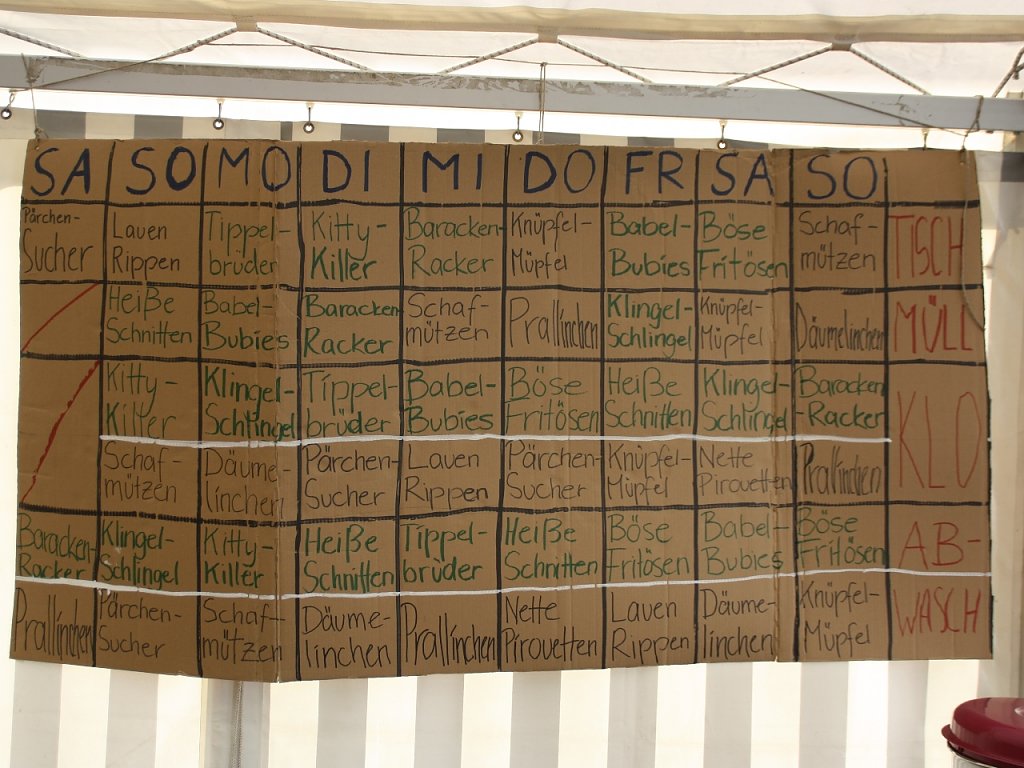 SA SO MO DI MI DO FR SA SO
Pärchen- Lauen Tippel- Kitty- Baracken- Knüpfel- Babel- Böse Schaf- TISCH
Sucher Rippen brüder Killer Racker Müpfel Bubies Fritösen mützen
Heiße Babel- Baracken Schaf- Prallinchen Klingel- Knüpfel- Däumelinchen MÜLL
Schnitten Bubies Racker mützen Schlingel Müpfel
Kitty- Klingel- Tippel- Babel- Böse Heiße Klingel- Baracken KLO
Killer Schlingel brüder Bubies Fritösen Schnitten Schlingel -Racker
Schaf- Däume- Pärchen- Lauen Pärchen- Knüpfel- Nette Prallinchen
mützen linchen Sucher Rippen Sucher Müpfel Pirouetten
Baracken- Klingel- Kitty- Heiße Tippel- Heiße Böse Babel- Böse AB-
Racker Schlingel Killer Schnitten brüder Schnitten Fritösen Bubies Fritösen
Prallinchen Pärchen- Schaf- Däume- Prallinchen Nette Lauen Däume- Knüpfel- WASCH
Sucher mützen linchen Pirouetten Rippen linchen Müpfel